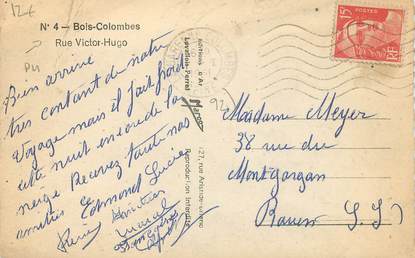 N° 4 — Bois-Colombes
Rue Victor-Hugo
Bien arrivé
très contant de notre
Voyage mais il fait froid
cette nuit encore de la
neige Recevez toute nos
amitiés Edmond Lucie
Rémi
Marcel
Madame Meyer
38 rue du
Montgargan
Rouen (S. I)
Editions d'Art
Levallois-Perret
Marco
127, rue Aristide-Briand
Reproduction Interdite
92
POSTES
15F
RF